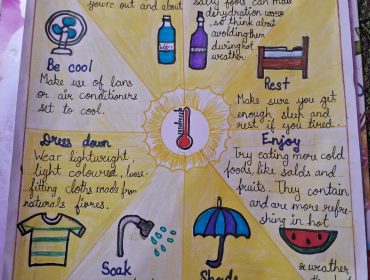 you're out and about
salty foods can make
dehydration worse
, so think about
avoiding them
during hot
weather
Be cool
Make use of fans
or air conditioners
set to cool.
Rest
Make sure you get
enough sleep and
rest if you tired.
Dress down
Wear lightweight,
light coloured, loose-
fitting cloths made from
naturals fibres.
Enjoy
Try eating more cold
foods, like salds and
fruits. They contain
and are more refre-
shing in hot
weather
Soak
Shade